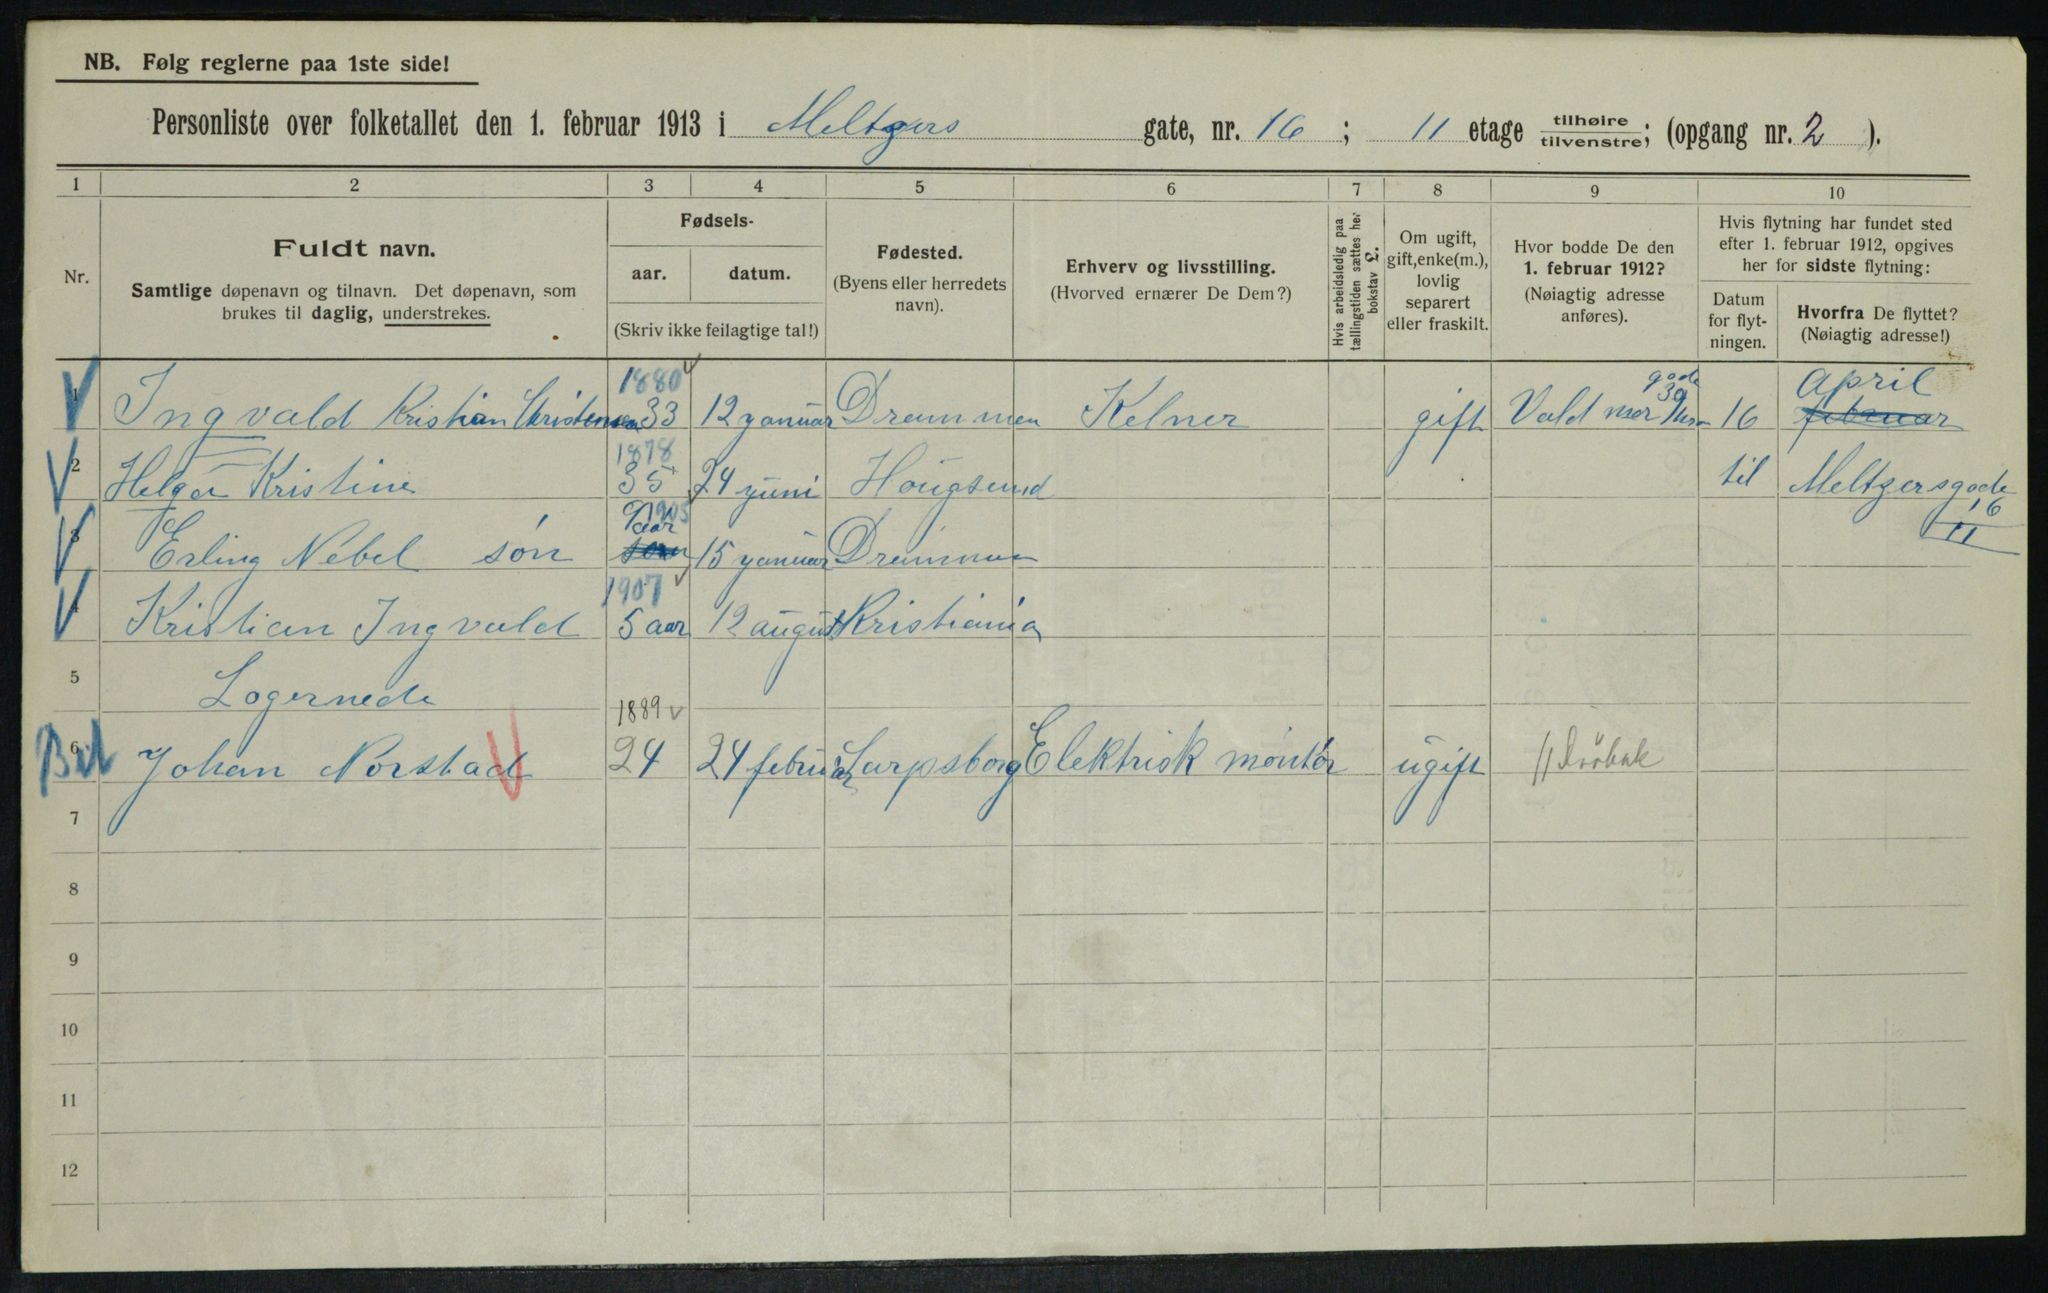 NB. Følg reglerne paa 1ste side!
Personliste over folketallet den 1. februar 1913 i Meltzers gate, nr. 16; 11 etage tilhøire tilvenstre; (opgang nr. 2).
1 2 3 4 5 6 7 8 9 10
Nr.
Fuldt navn.
Samtlige døpenavn og tilnavn. Det døpenavn, som
brukes til daglig, understrekes.
Fødsels-
aar. datum.
(Skriv ikke feilagtige tal!)
Fødested.
(Byens eller herredets
navn).
Erhverv og livsstilling.
(Hvorved ernærer De Dem?)
Hvis arbeidsledig paa
tællingstiden sættes her
bokstav L.
Om ugift,
gift, enke(m.),
lovlig
separert
eller fraskilt.
Hvor bodde De den
1. februar 1912?
(Nøiagtig adresse
anføres).
Hvis flytning har fundet sted
efter 1. februar 1912, opgives
her for sidste flytning:
Datum
for flyt-
ningen.
Hvorfra De flyttet?
(Nøiagtig adresse!)
1880 gade april
1 Ingvald Kristian Christensen 33 12 yanuar Drammen Kelner gift Valdmer 39 16 februar
1878
2 Helga Kristine 35 24 yuni Hougsund til Meltzersgade
16
11
1905
9 aar
3 Erling Nebel søn søn 15 yanuar Drammen
1907
4 Kristian Ingvald 5 aar 12 august Kristiania
5 Logernede
1889
Bil 6 Johan Norstad 24 24 februar Sarpsborg Elektrisk montør ugift Drøbak
7
8
9
10
11
12